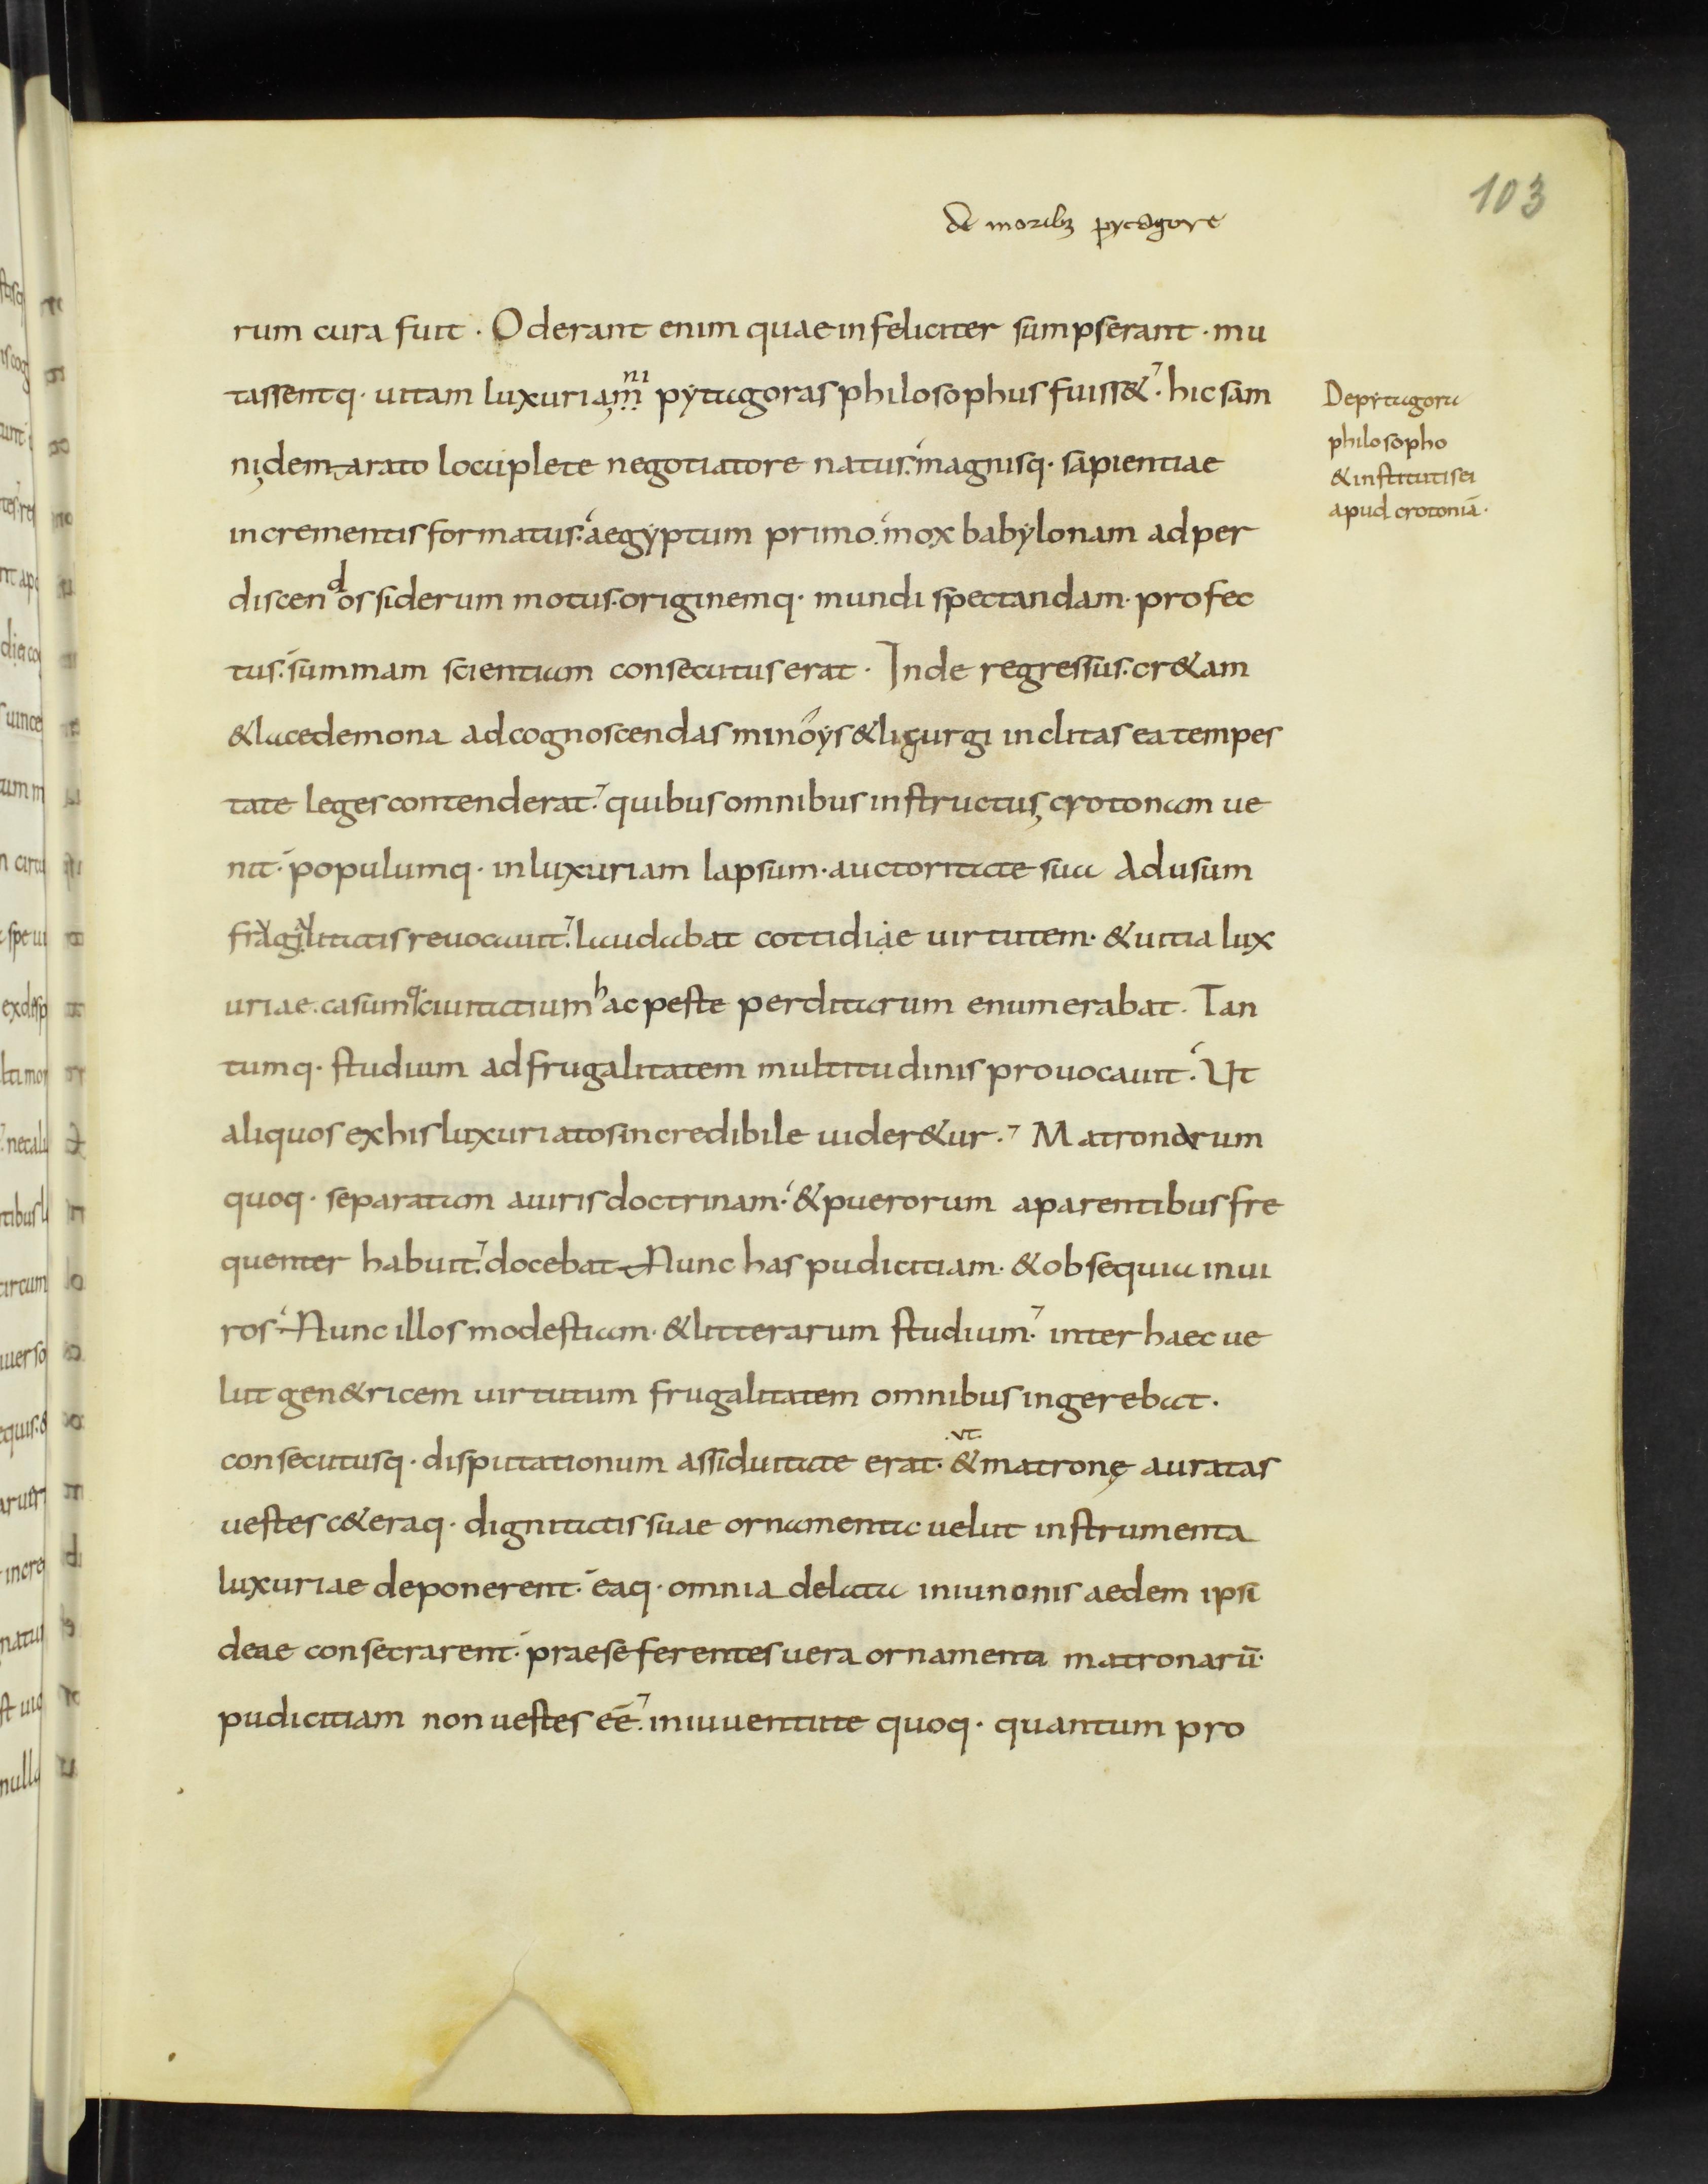 103
de moribꝫ pytagore
rum cura fuit · Oderant enim quae infeliciter sumpserant · mu
tassentq· uitam luxuriaṃ ni pytagoras philosophus fuiss& · hic sam
nidem arato locuplete negotiatore natus · magnisq· sapientiae
incrementis formatus · aegyptum primo · mox babylonam ad per
discendos siderum motus · originemq· mundi spectandam · profec
tus · summam scientiam consecutus erat · Inde regressus · cr&am
& lacedemona ad cognoscendas minoys & ligurgi inclitas ea tempes
tate leges contenderat · quibus omnibus instructus crotonam ue
nit · populumq· in luxuriam lapsum · auctoritate sua ad usum
fragilitatis reuocauit · laudabat cottidiae uirtutem · & uitia lux
uriae · casumq· ciuitatium hac peste perditarum enumerabat · Tan
tumq· studium ad frugalitatem multitudinis prouocauit · Ut
aliquos ex his luxuriatos incredibile uider&ur · Matronarum
quoq· separatim a uiris doctrinam · & puerorum a parentibus fre
quenter habuit · docebat Nunc has pudicitiam · & obsequia in ui
ros Nunc illos modestiam · & litterarum studium · inter haec ue
lut gen&ricem uirtutum frugalitatem omnibus ingerebat ·
consecutusq· disputationum assiduitate erat · ut & matronę auratas
uestes c&eraq· dignitatis suae ornamenta uelut instrumenta
luxuriae deponerent · eaq· omnia delata in iunonis aedem ipsi
deae consecrarent · prae se ferentes uera ornamenta matronarū·
pudicitiam non uestes eē · in iuuentute quoq· quantum pro
De pytagora
philosopho
& institutis ei
apud crotoniā·